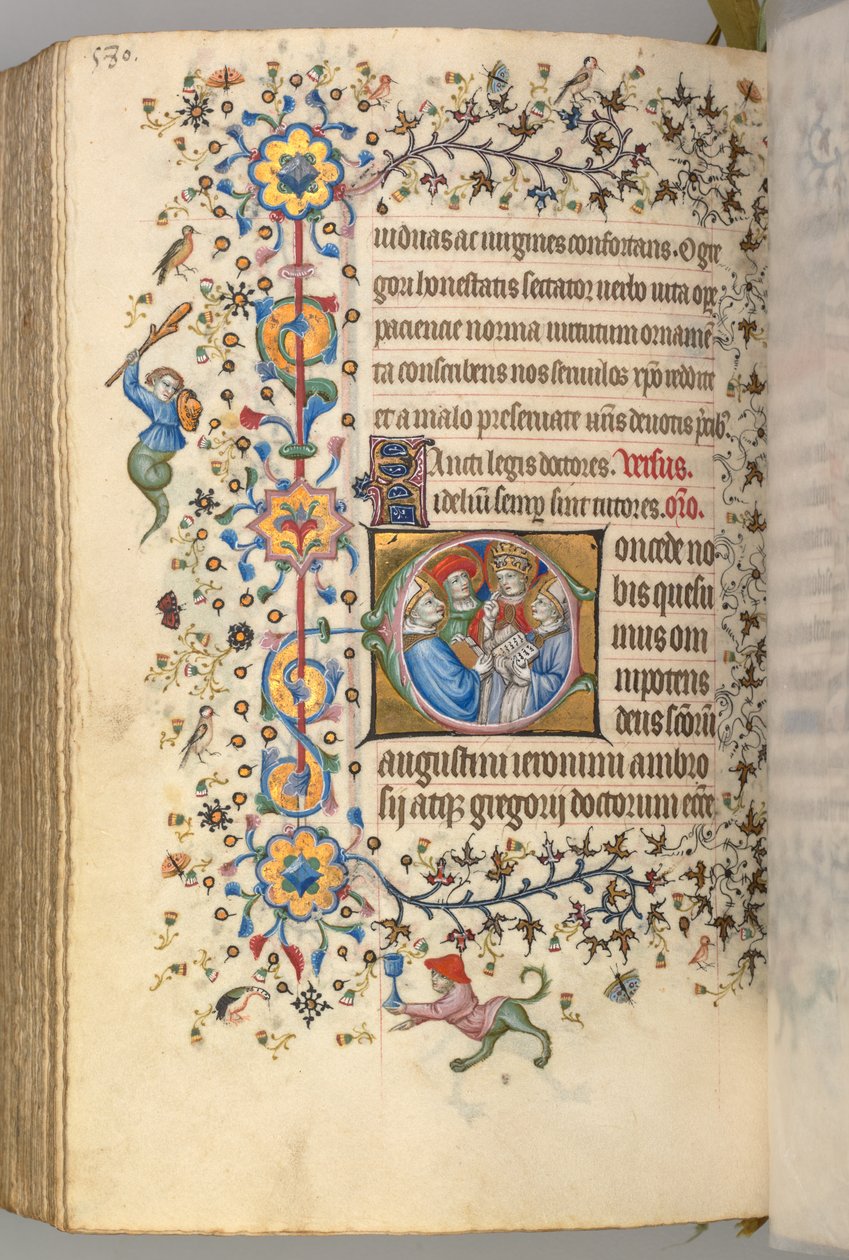 530.
uiduas ac uirgines confortans. O gre
gori honestatis sectator uerbo uita opꝑe
paciencie norma uirtutum ornamē
ta conscribens nos seruulos xp̄o reddite
et a malo preseruate ur̄is deuotis p̄cibꝫ.
Sancti legis doctores. Versus.
Fideliū semꝑ sint tutores. or̄o.
Concede no
bis quesu
mus om
nipotens
deus sc̄orū
augustini ieronimi ambro
sij atqꝫ gregorij doctorum ecc̄e